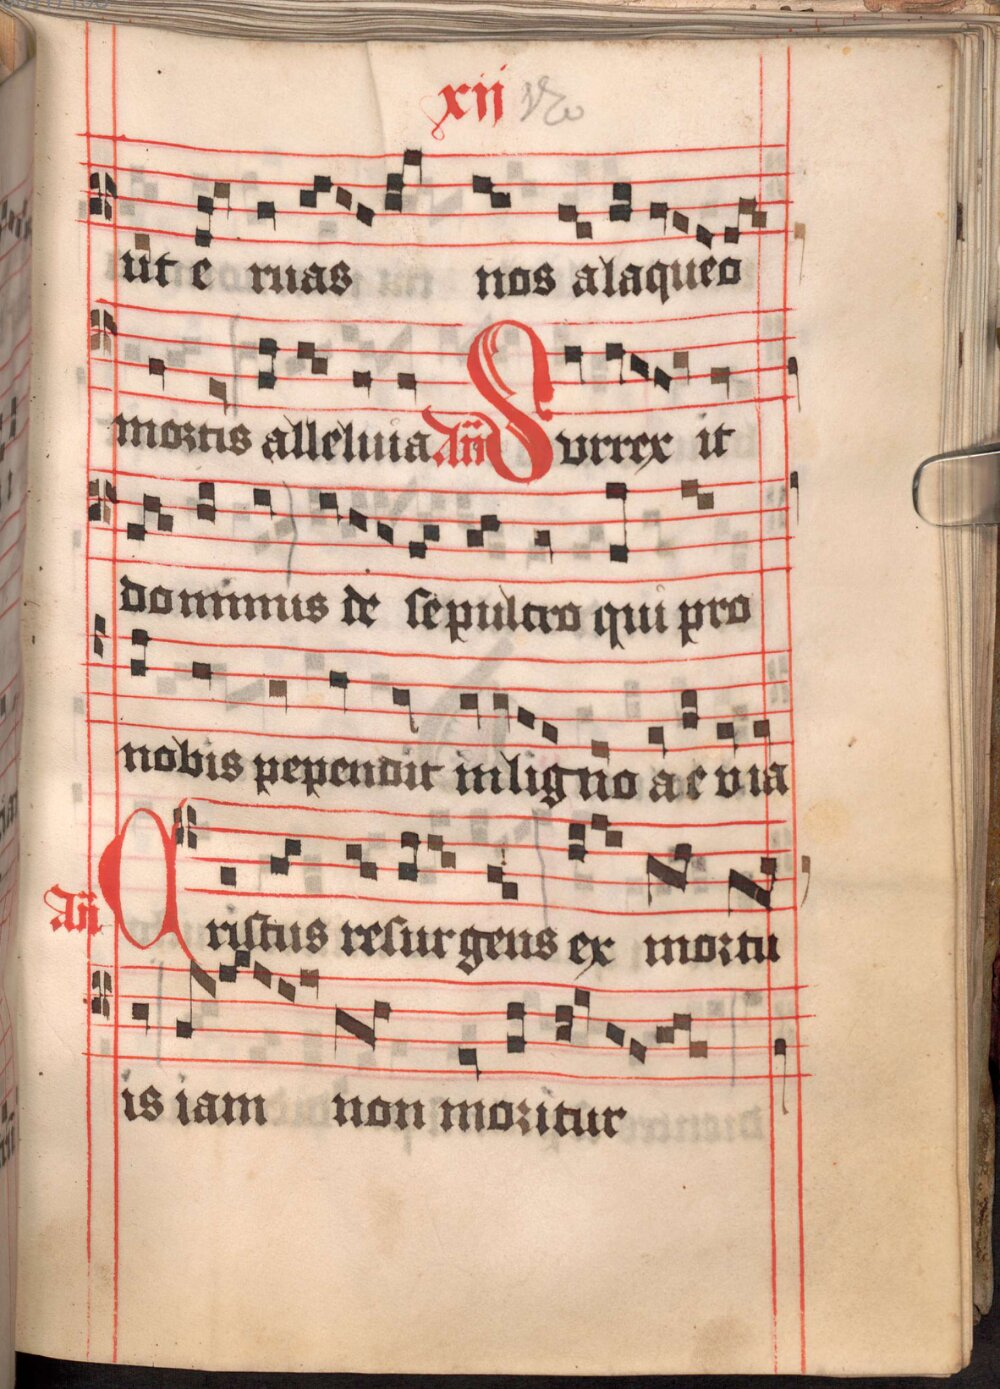 xij
ut e ruas nos alaqueo
mortis alleluia. Añ Surrex it
dominus de sepulcro qui pro
nobis pependit inligno a e v ia
Añ Cristus resurgens ex mortu
is iam non moritur